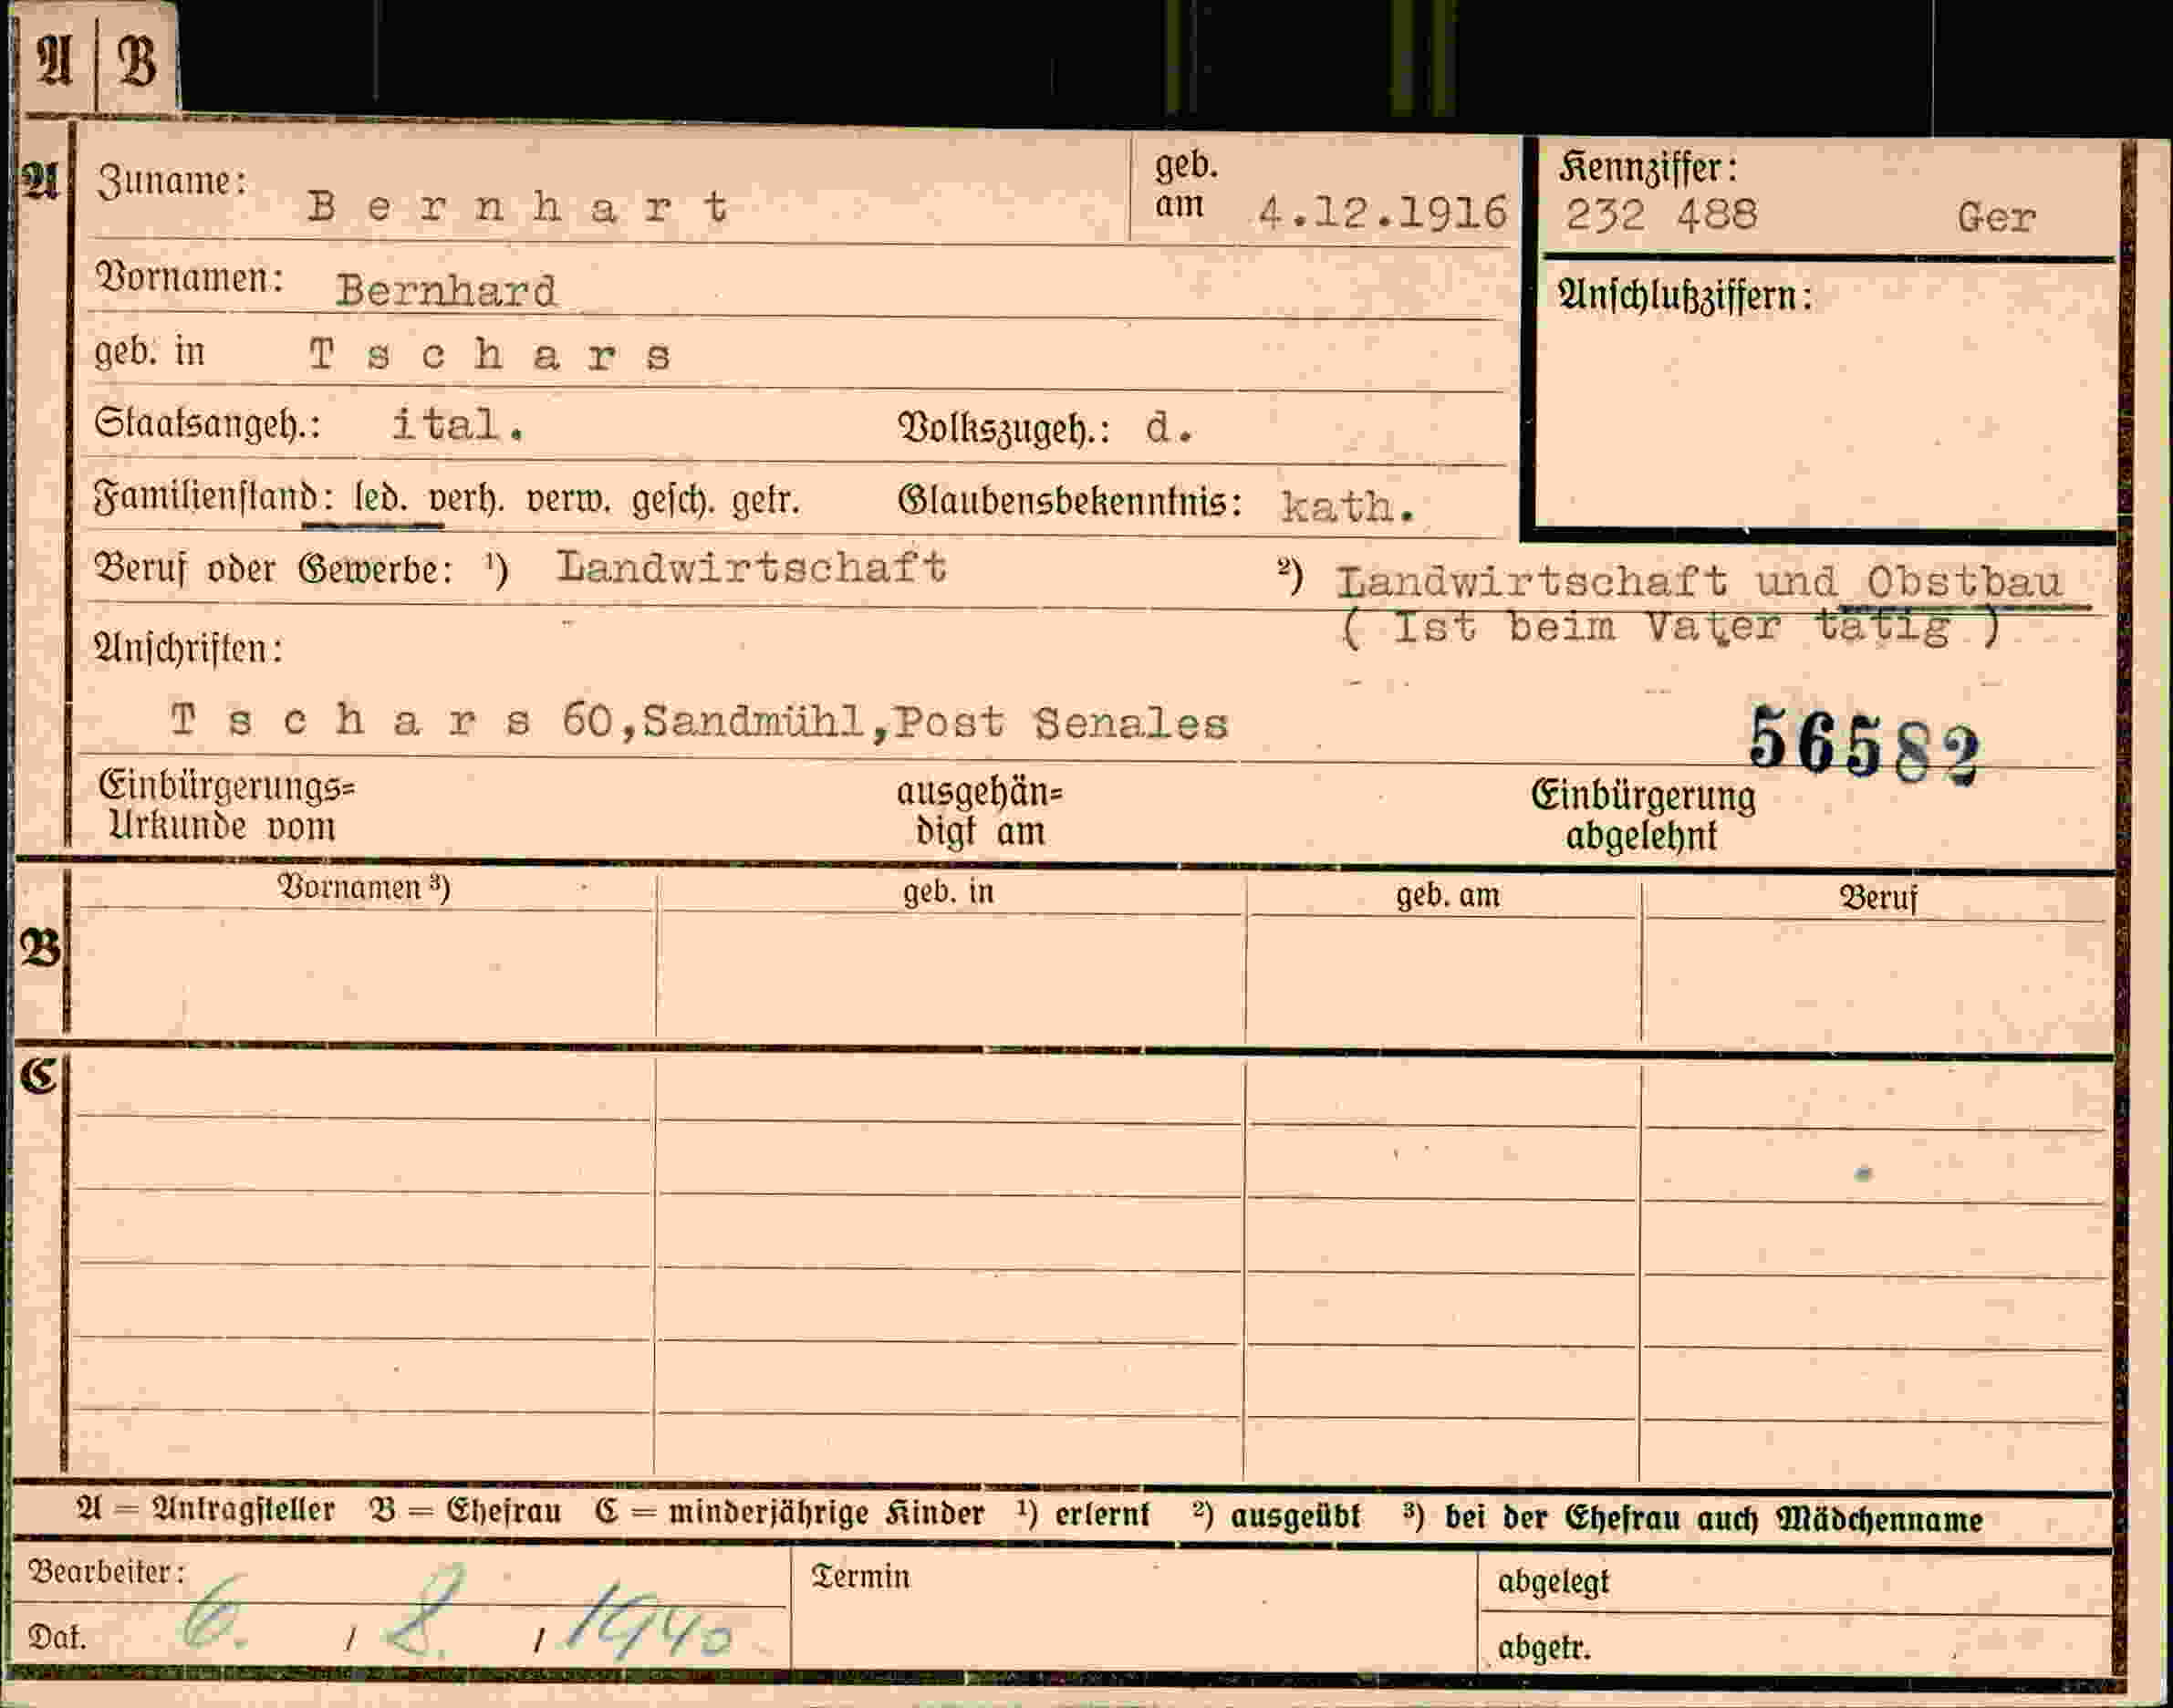 A | B
A Zuname: Bernhart geb. am 4.12.1916 Kennziffer: 232 488 Ger
Vornamen: Bernhard Anschlußziffern:
geb. in Tschars
Staatsangeh.: ital. Volkszugeh.: d.
Familienstand: led. verh. verw. gesch. getr. Glaubensbekenntnis: kath.
Beruf oder Gewerbe: ¹) Landwirtschaft ²) Landwirtschaft und Obstbau
( Ist beim Vater tätig )
Anschriften:
Tschars 60, Sandmühl, Post Senales
56582
Einbürgerungs= Urkunde vom ausgehän= digt am Einbürgerung abgelehnt
Vornamen ³) geb. in geb. am Beruf
B
C
A = Antragsteller B = Ehefrau C = minderjährige Kinder ¹) erlernt ²) ausgeübt ³) bei der Ehefrau auch Mädchenname
Bearbeiter: Termin abgelegt
Dat. 6. / 8. / 1940 abgetr.